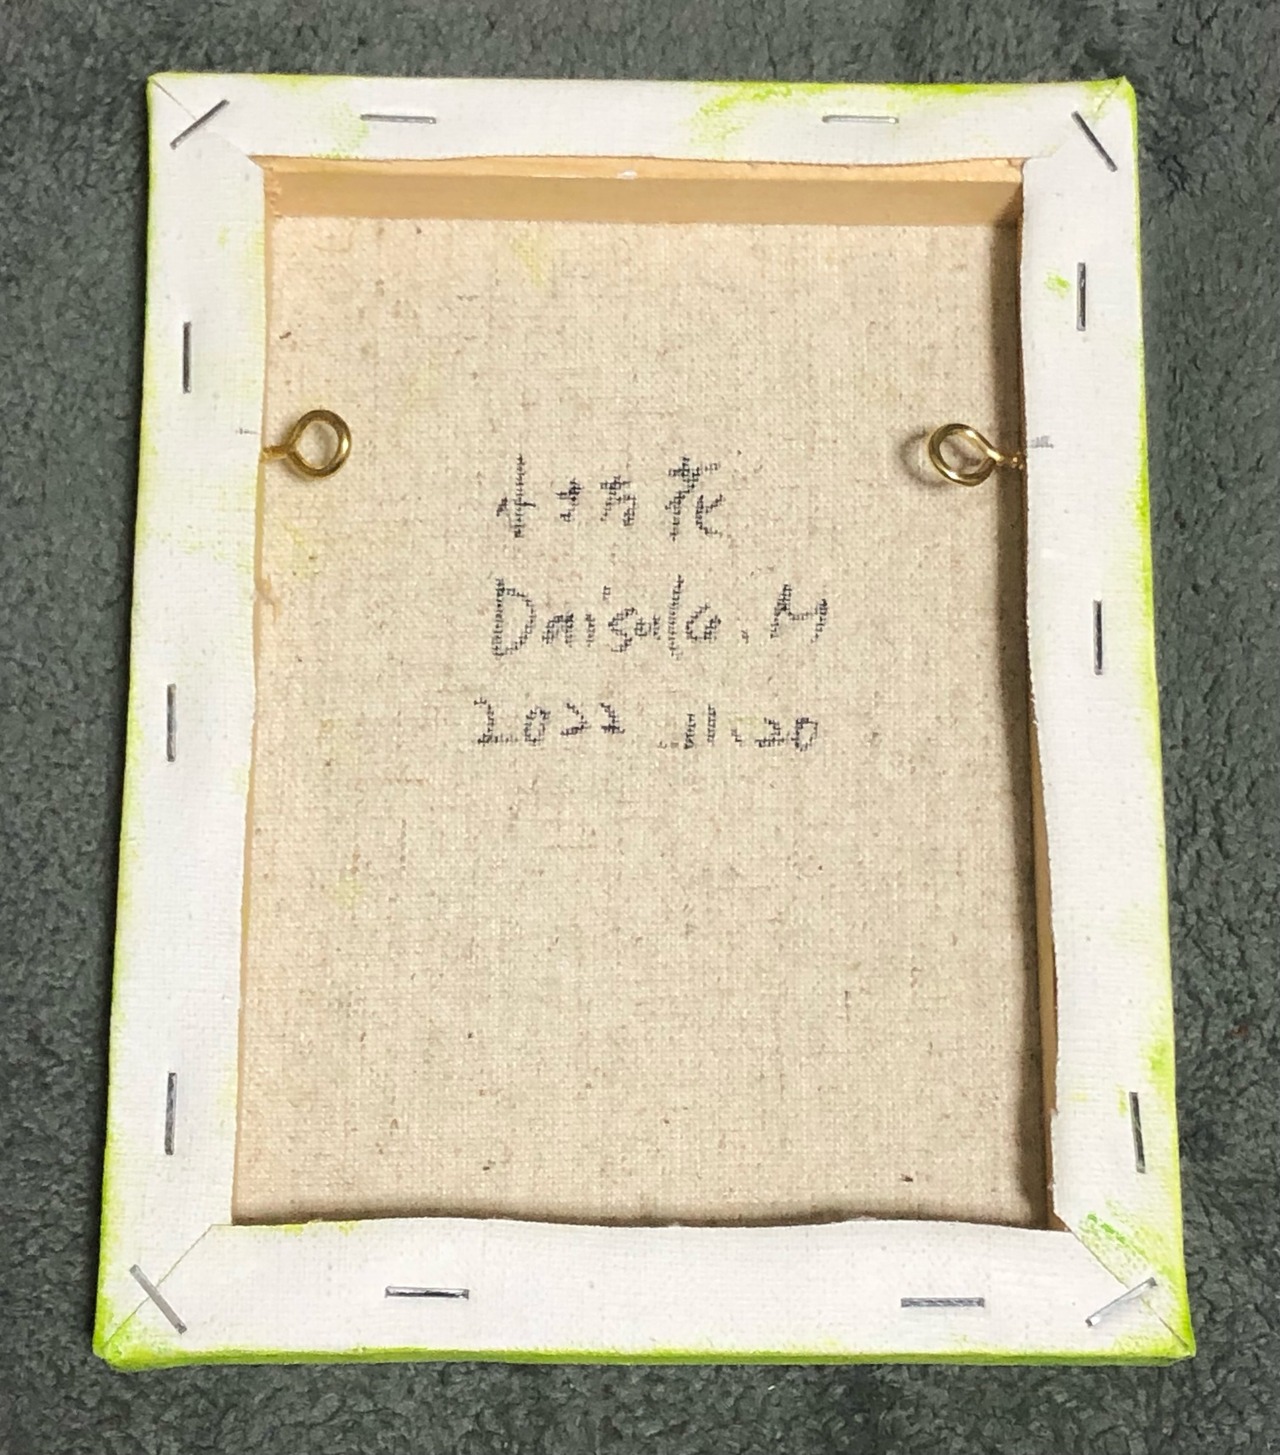 小さな花
Daisuke. M
2022 11.20